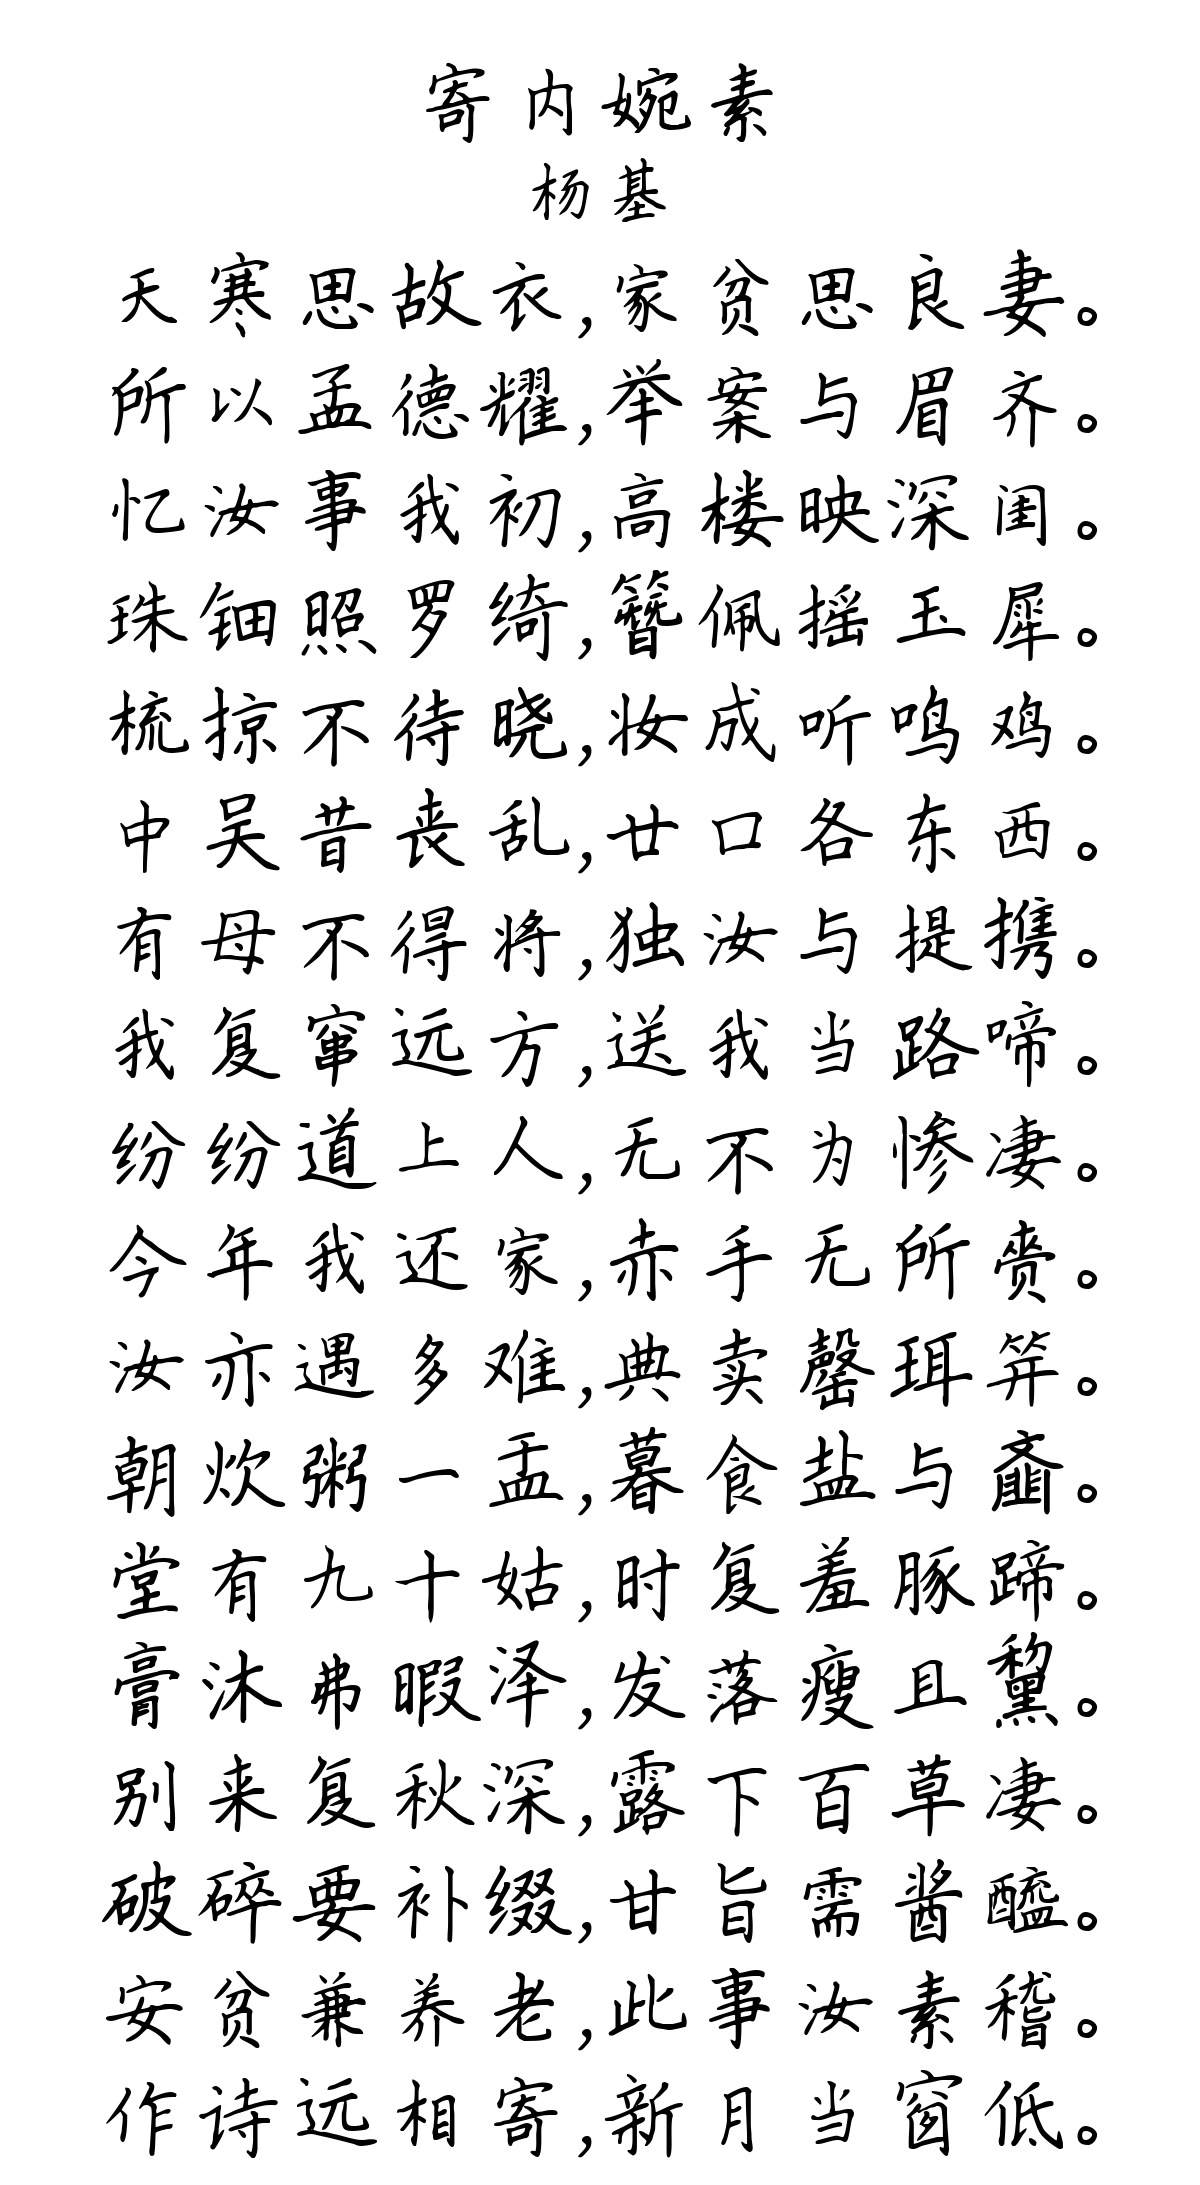 寄内婉素
杨基
天寒思故衣,家贫思良妻。
所以孟德耀,举案与眉齐。
忆汝事我初,高楼映深闺。
珠钿照罗绮,簪佩摇玉犀。
梳掠不待晓,妆成听鸣鸡。
中吴昔丧乱,廿口各东西。
有母不得将,独汝与提携。
我复窜远方,送我当路啼。
纷纷道上人,无不为惨凄。
今年我还家,赤手无所赍。
汝亦遇多难,典卖罄珥笄。
朝炊粥一盂,暮食盐与齑。
堂有九十姑,时复羞豚蹄。
膏沐弗暇泽,发落瘦且黧。
别来复秋深,露下百草凄。
破碎要补缀,甘旨需酱醯。
安贫兼养老,此事汝素稽。
作诗远相寄,新月当窗低。